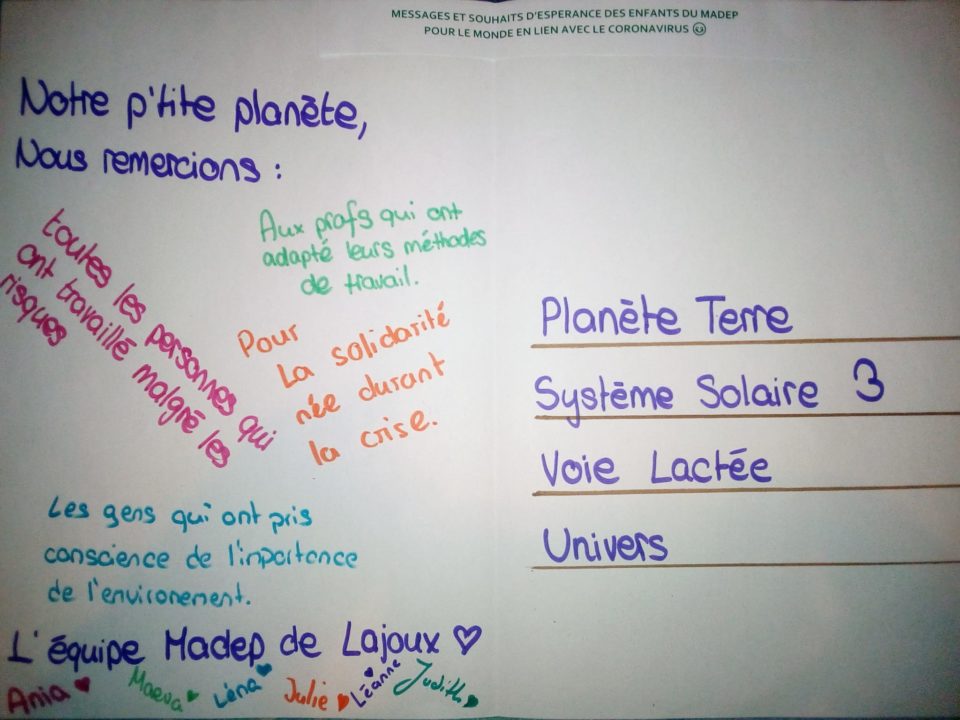 MESSAGES ET SOUHAITS D'ESPERANCE DES ENFANTS DU MADEP
POUR LE MONDE EN LIEN AVEC LE CORONAVIRUS ☺
Notre p'tite planète,
Nous remercions :
toutes les personnes qui
ont travaillé malgré les
risques
Aux profs qui ont
adapté leurs méthodes
de travail.
Pour
La solidarité
née durant
la crise.
Les gens qui ont pris
conscience de l'importance
de l'environement.
L'équipe Madep de Lajoux ♡
Ania ♥ Maeva ♥ Léna ♥ Julie ♥ Léanne ♥ Judith ♥
Planète Terre
Système Solaire 3
Voie Lactée
Univers